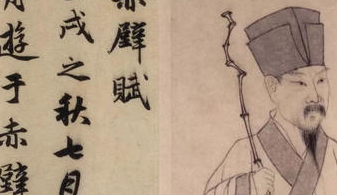 赤壁賦
戌之秋七月
游于赤壁